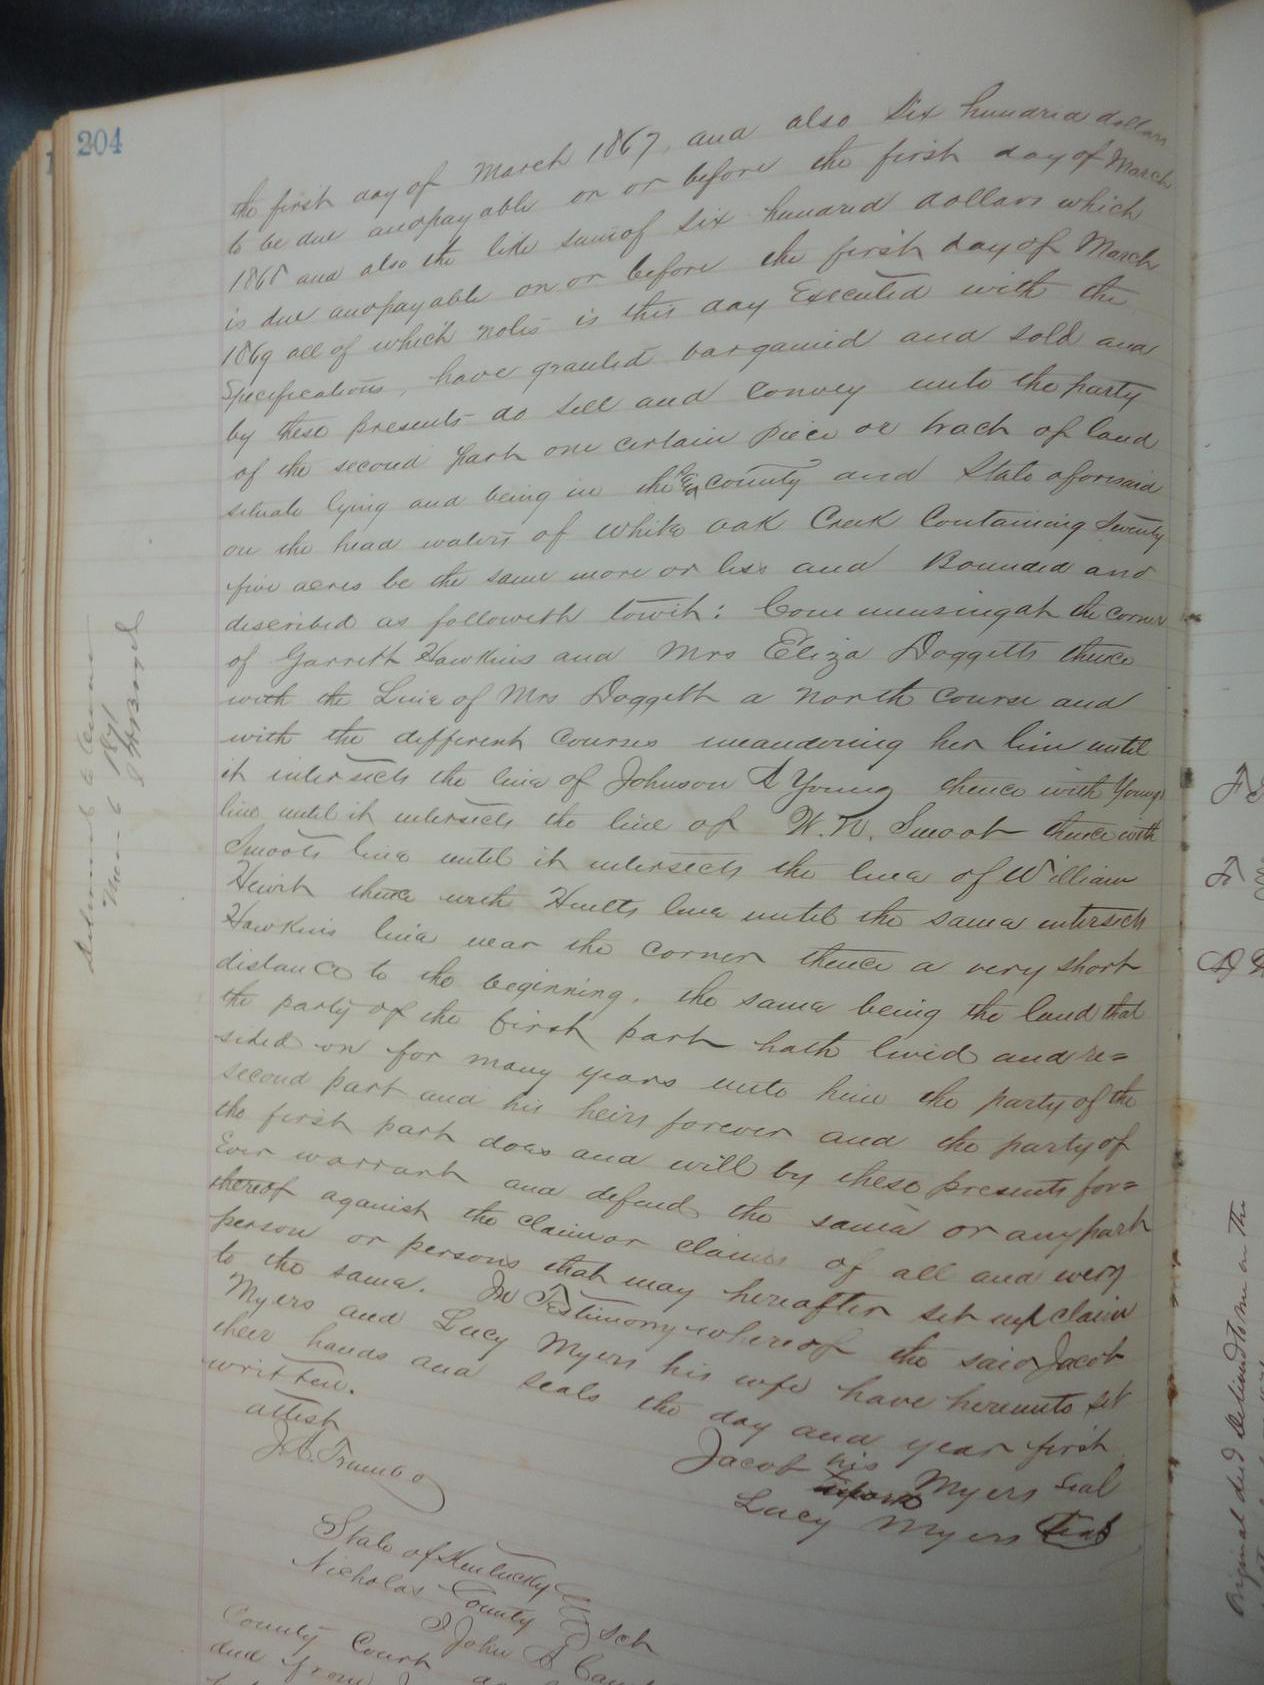 204
the first day of March 1867, and also six hundred dollars
to be due and payable on or before the first day of March
1868 and also the like sum of six hundred dollars which
is due and payable on or before the first day of March
1869 all of which notes is this day Executed with the
Specifications, have granted bargained and sold and
by these presents do sell and convey unto the party
of the second part one certain piece or tract of land
situate lying and being in the county and State aforesaid
on the head waters of White oak Creek Containing Seventy
five acres be the same more or less and Bounded and
described as followeth towit: Commensing at the corner
of Garrett Hawkins and Mrs Eliza Doggetts thence
with the Line of Mrs Doggett a north course and
with the different courses meandering her line until
it intersects the line of Johnson A Young thence with Youngs
line until it intersects the line of W. N. Smoot thence with
Smoots line until it intersects the line of William
Hewit thence with Hewitts line until the same intersects
Hawkins line near the corner thence a very short
distance to the beginning. the same being the land that
the party of the first part hath lived and re=
sided on for many years unto him the party of the
second part and his heirs forever and the party of
the first part does and will by these presents for=
Ever warrant and defend the same or any part
thereof against the claim or claims of all and every
person or persons that may hereafter set up claim
to the same. In Testimony whereof the said Jacob
Myers and Lucy Myers his wife have hereunto set
their hands and seals the day and year first
written.
attest
J. A. Trumbo
Jacob his x Myers Seal
Lucy Myers Seal
State of Kentucky
Nicholas County Sct
I John A
County Court
and from
Original deed Delivered to me on the